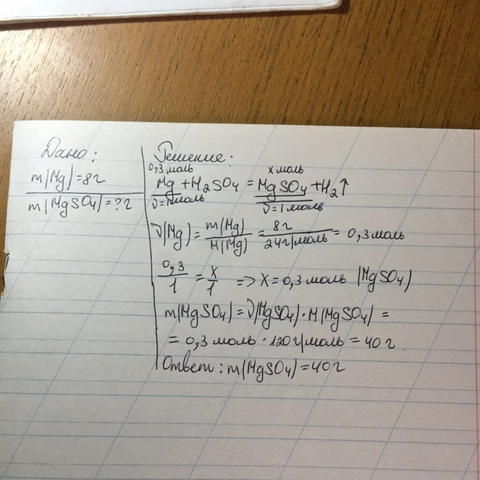 Дано:
m(Mg)=8г
m(MgSO4)=?г
Решение:
0,3 моль x моль
Mg+H2SO4=MgSO4+H2↑
ν=1моль ν=1моль
ν(Mg)=m(Mg)/M(Mg)=8г/24г/моль=0,3моль
0,3/1=x/1 => X=0,3моль (MgSO4)
m(MgSO4)=ν(MgSO4)·M(MgSO4)=
=0,3 моль·120г/моль=40г
Ответ: m(MgSO4)=40г